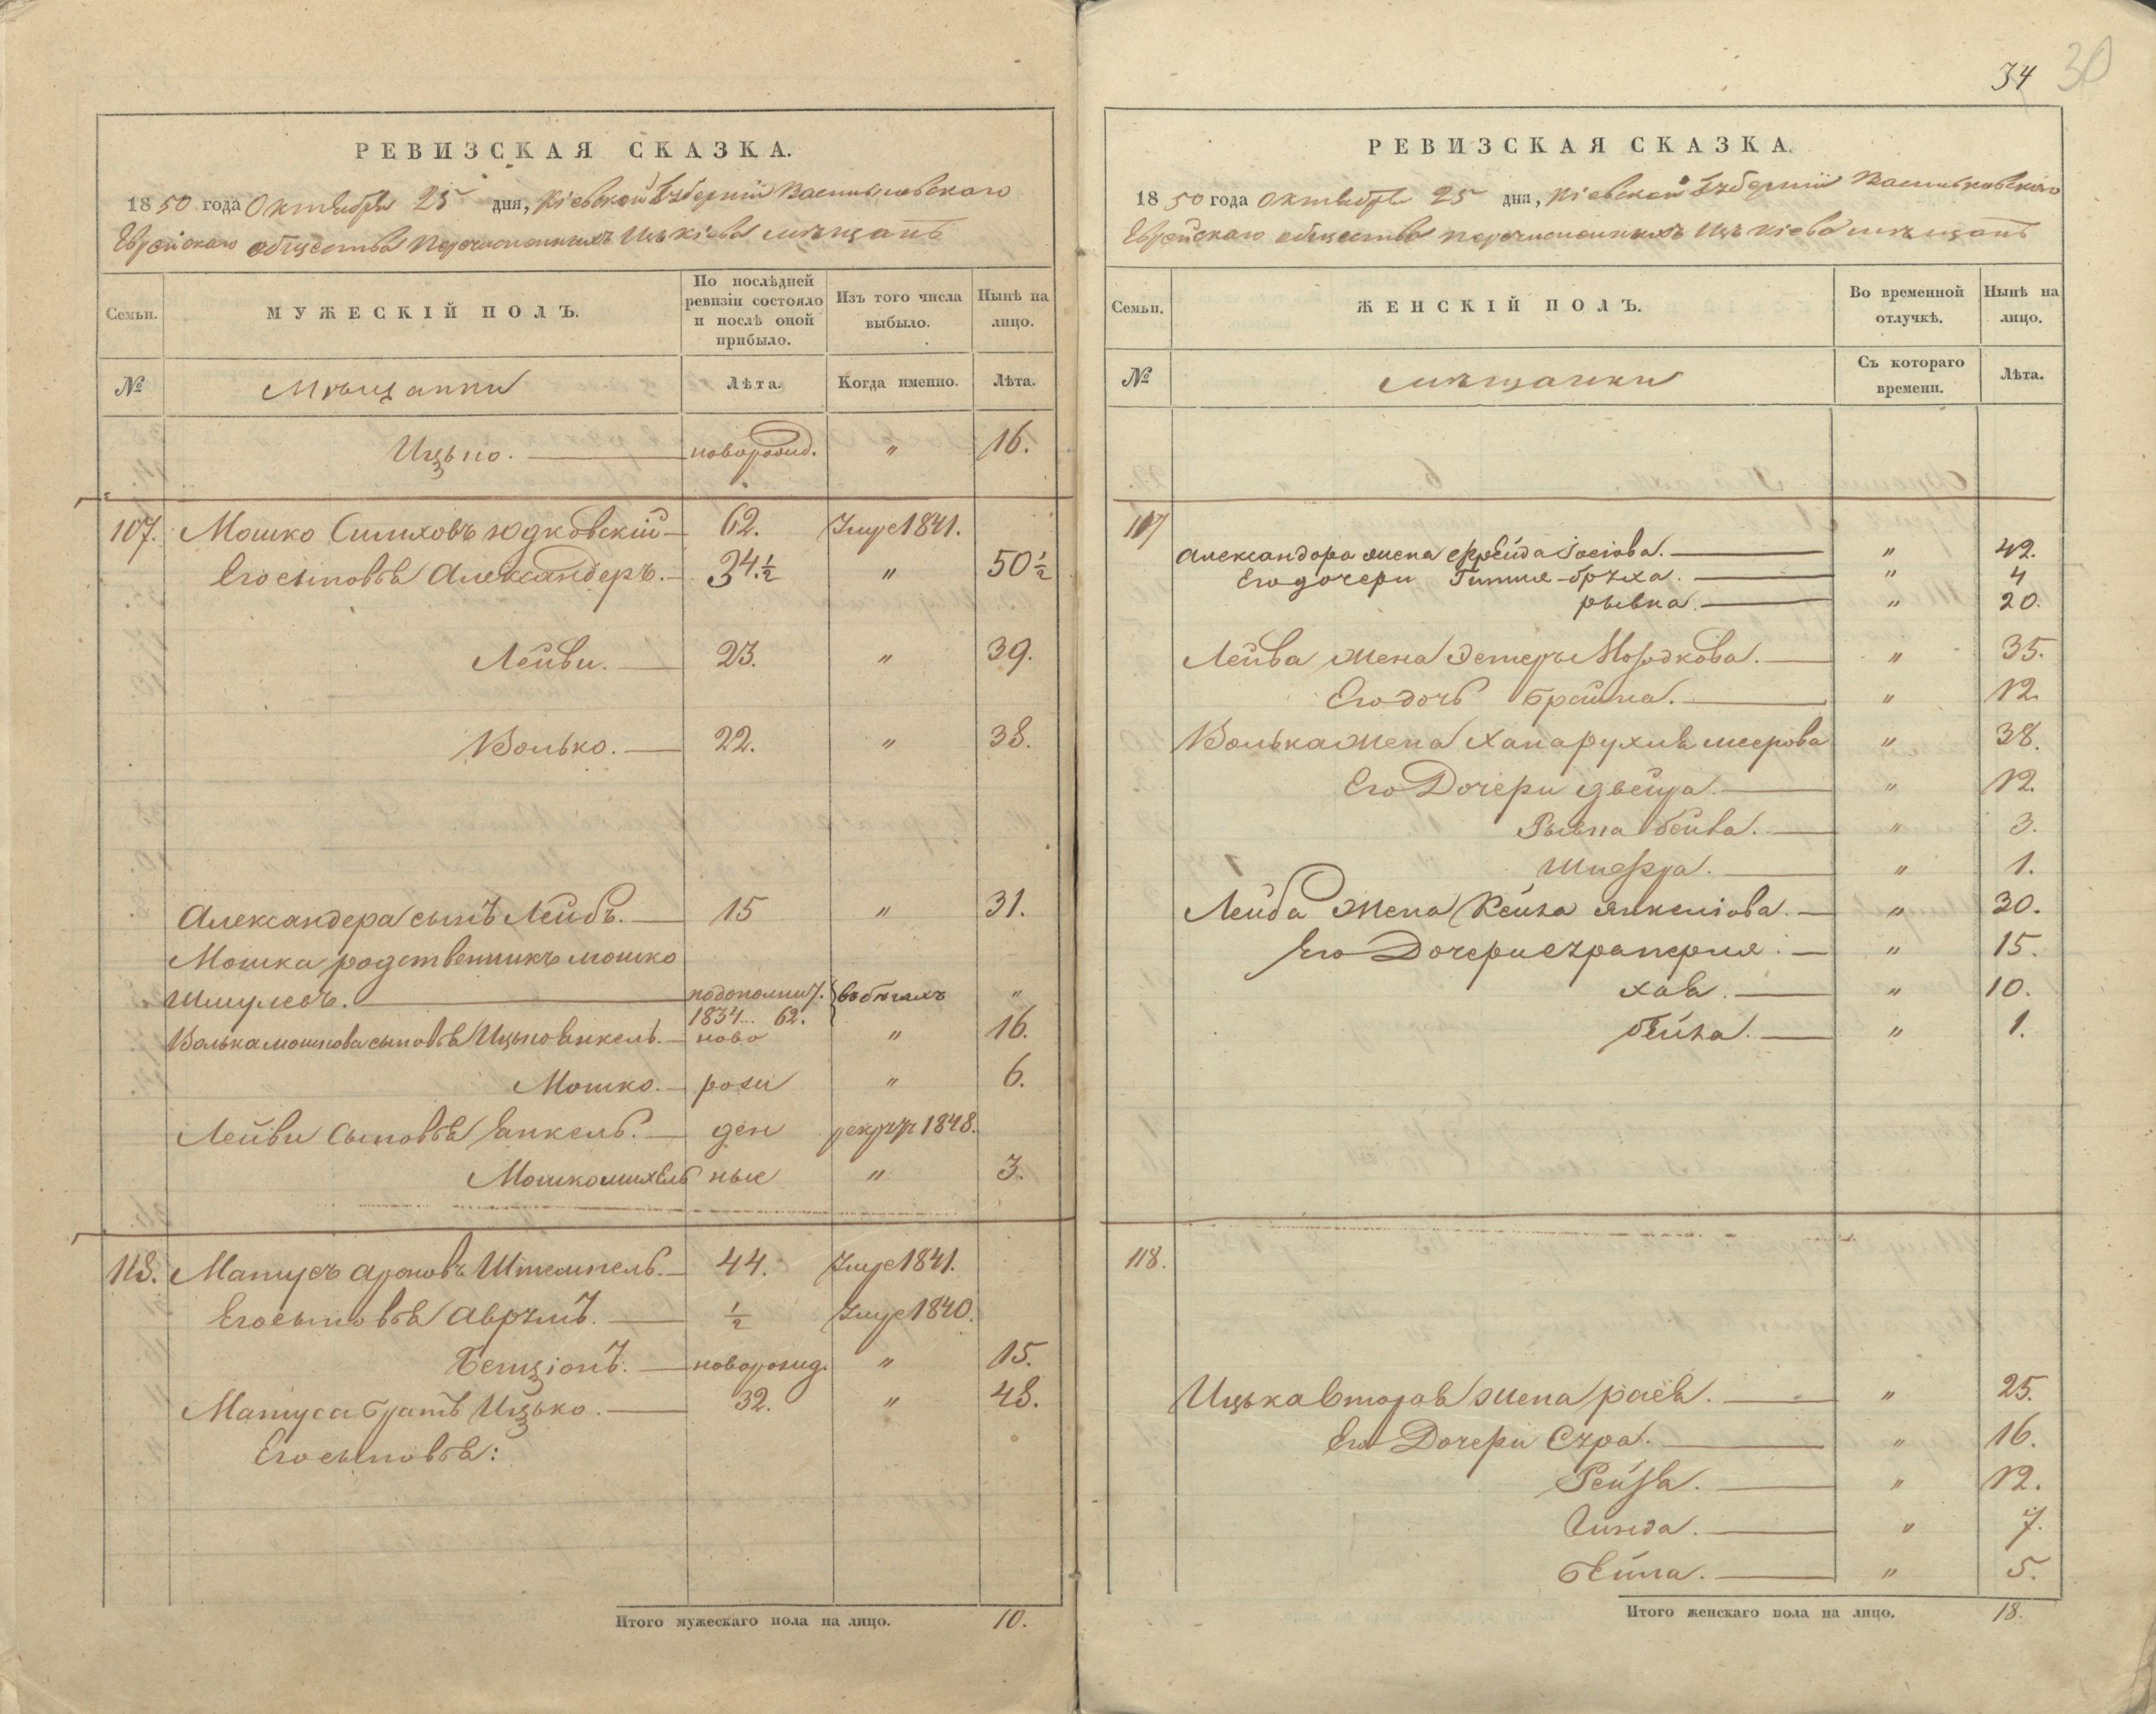 РЕВИЗСКАЯ СКАЗКА.
1850 года Октября 25 дня, Кіевской Губерніи Васильковскаго
Еврейскаго общества Перечисленныхъ Изъ Кіева мѣщанъ
Семьи.
МУЖЕСКІЙ ПОЛЪ.
По послѣдней ревизіи состояло и послѣ оной прибыло.
Изъ того числа выбыло.
Нынѣ на лицо.
№
Мѣщанки
Лѣта.
Когда именно.
Лѣта.
Ицько. новорожд. " 16.
107. Мошко Симховъ Юдковскій 62. Умре 1841.
Его сыновья Александеръ. 34.½ " 50½
Лейви. 23. " 39.
Волько. 22. " 38.
Александера сынъ Лейбъ. 15 " 31.
Мошка родственникъ мошко
Шмулевъ. по дополнит. 1834... 62. въ бѣгахъ "
Волька мошкова сыновья Ицько Янкель. ново " 16.
Мошко. рож " 6.
Лейви Сыновья Янкель. ден рекрут 1848.
Мошко михель ные " 3.
118. Матусъ ароновъ Штемпель. 44. Умре 1841.
Его сыновья Аврумъ. ½ Умре 1840.
Бенціонъ. новорожд. " 15.
Матуса братъ Ицько. 32. " 48.
Его сыновья:
Итого мужескаго пола на лицо. 10.
34 30
РЕВИЗСКАЯ СКАЗКА.
1850 года Октября 25 дня, Кіевской Губерніи Васильковскаго
Еврейскаго общества перечисленныхъ Изъ Кіева мѣщанъ
Семьи.
ЖЕНСКІЙ ПОЛЪ.
Во временной отлучкѣ.
Нынѣ на лицо.
№
мѣщанки
Съ котораго времени.
Лѣта.
107
Александора жена Фрейда Іосіова. " 42.
Его дочери Гитля-бруха. " 4
рывка. " 20.
Лейва Жена Эстеръ Мордкова. " 35.
Его дочь Брайна. " 12.
Волька жена Хана рухля меерова " 38.
Его Дочери двейра. " 12.
Рывка бейла. " 3.
Шифра. " 1.
Лейба Жена Рейза Янкеліова. " 30.
Его Дочери Сура перля. " 15.
хая. " 10.
бейла. " 1.
118.
Ицька вторая Жена рася. " 25.
Его Дочери Сура. " 16.
Рейзя. " 12.
" 7.
Бейла. " 5.
Итого женскаго пола на лицо. 18.